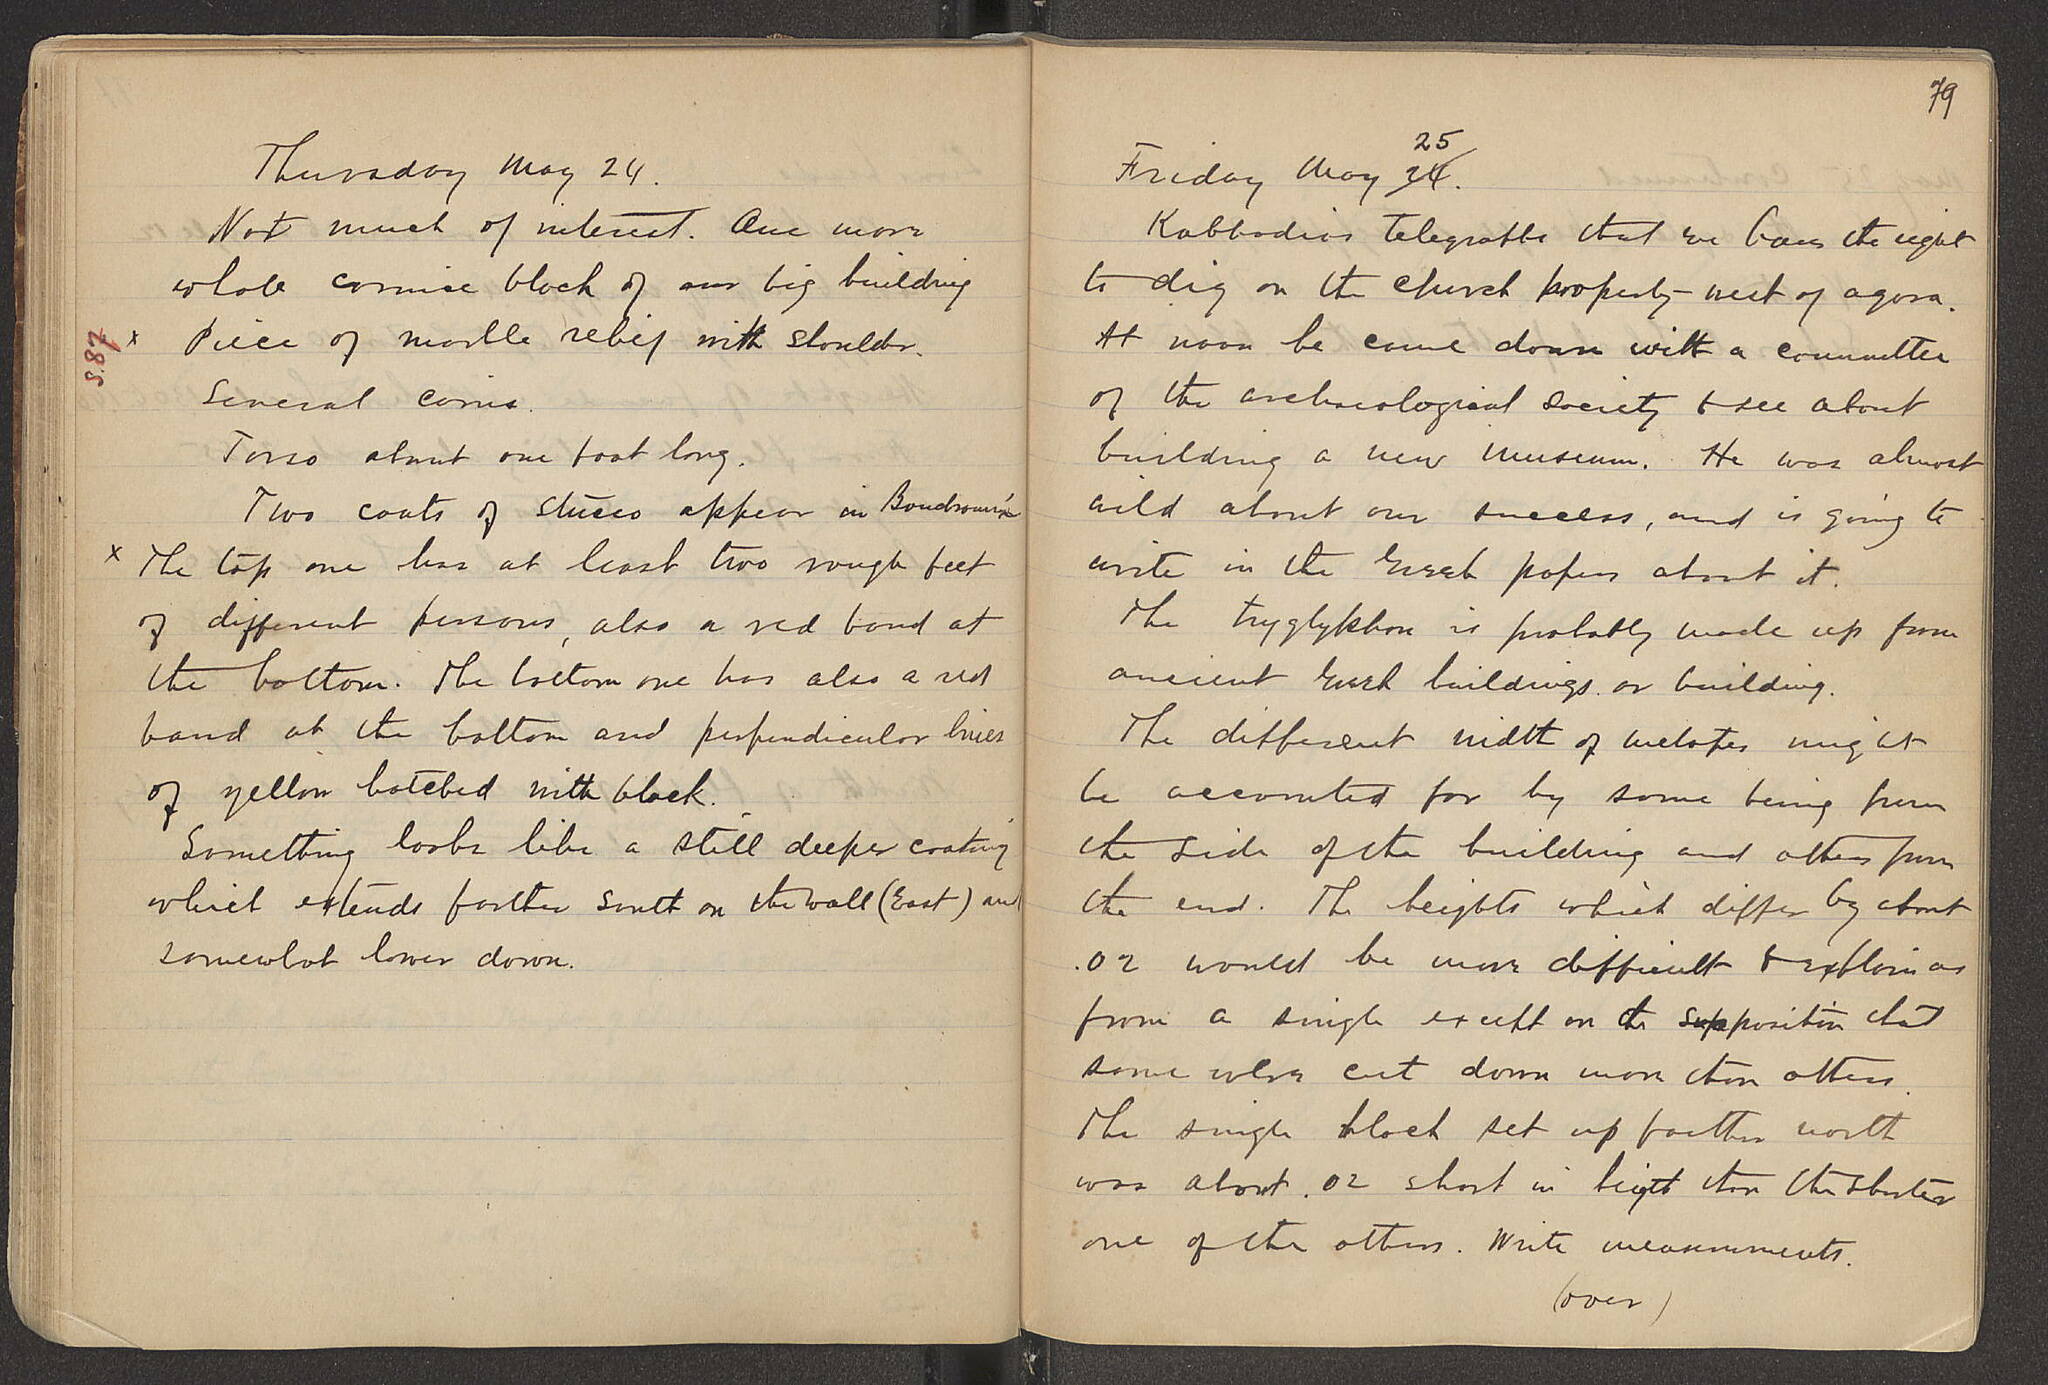 Thursday May 24.
Not much of interest. One more
whole cornice block of our big building
S.87
x Piece of marble relief with shoulder.
Several coins.
Torso about one foot long.
Two coats of stucco appear in
x The top one has at least two rough feet
of different persons, also a red band at
the bottom. The bottom one has also a red
band at the bottom and perpendicular lines
of yellow hatched with black.
Something looks like a still deeper coating
which extends farther South on the wall (East) and
somewhat lower down.
79
Friday May 24. 25
Kabbadias telegraphs that we have the right
to dig on the church property west of agora.
At noon he came down with a committee
of the archaeological society to see about
building a new museum. He was almost
wild about our success, and is going to
write in the Greek papers about it.
The tryglykhon is probably made up from
ancient Greek buildings or building.
The different width of metopes might
be accounted for by some being from
the side of the building and others from
the end. The heights which differ by about
.02 would be more difficult to explain as
from a single except on the supposition that
some were cut down more than others.
The single block set up farther north
was about .02 short in hieght than the shorter
one of the others. Write measurements.
(over)